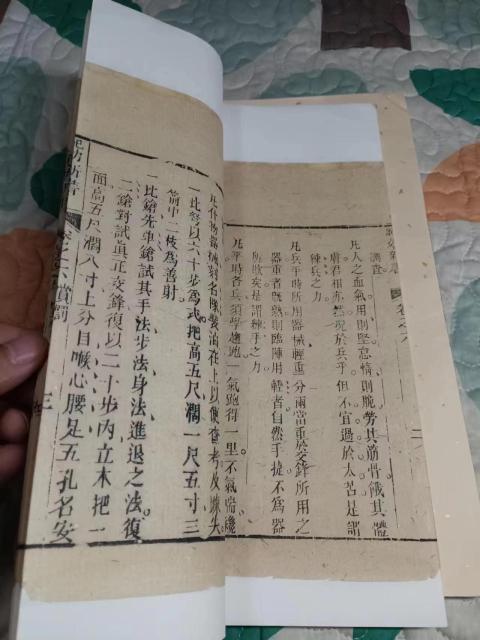 凡人之血氣用則堅怠惰則脆勞其筋骨餓其體
膚君相亦然況於兵乎但不宜過於太苦是謂
練兵之力
凡兵平時所用器械輕重分兩當重於交鋒所用之
器重者旣熟則臨陣用輕者自然手捷不爲器
所敗矣是謂練手之力
凡平時各兵須學趨跑一氣跑得一里不氣喘纔
凡什物器械刻名隊油在上以便查考及失
一比射以六十步爲式把高五尺濶一尺五寸三
箭中二枝爲善射
一比鎗先单鎗試其手法步法身法進退之法復
二鎗對試眞正交鋒復以二十步内立木把一
面高五尺濶八寸上分目喉心腰足五孔名安
卷之六 賞罰 三